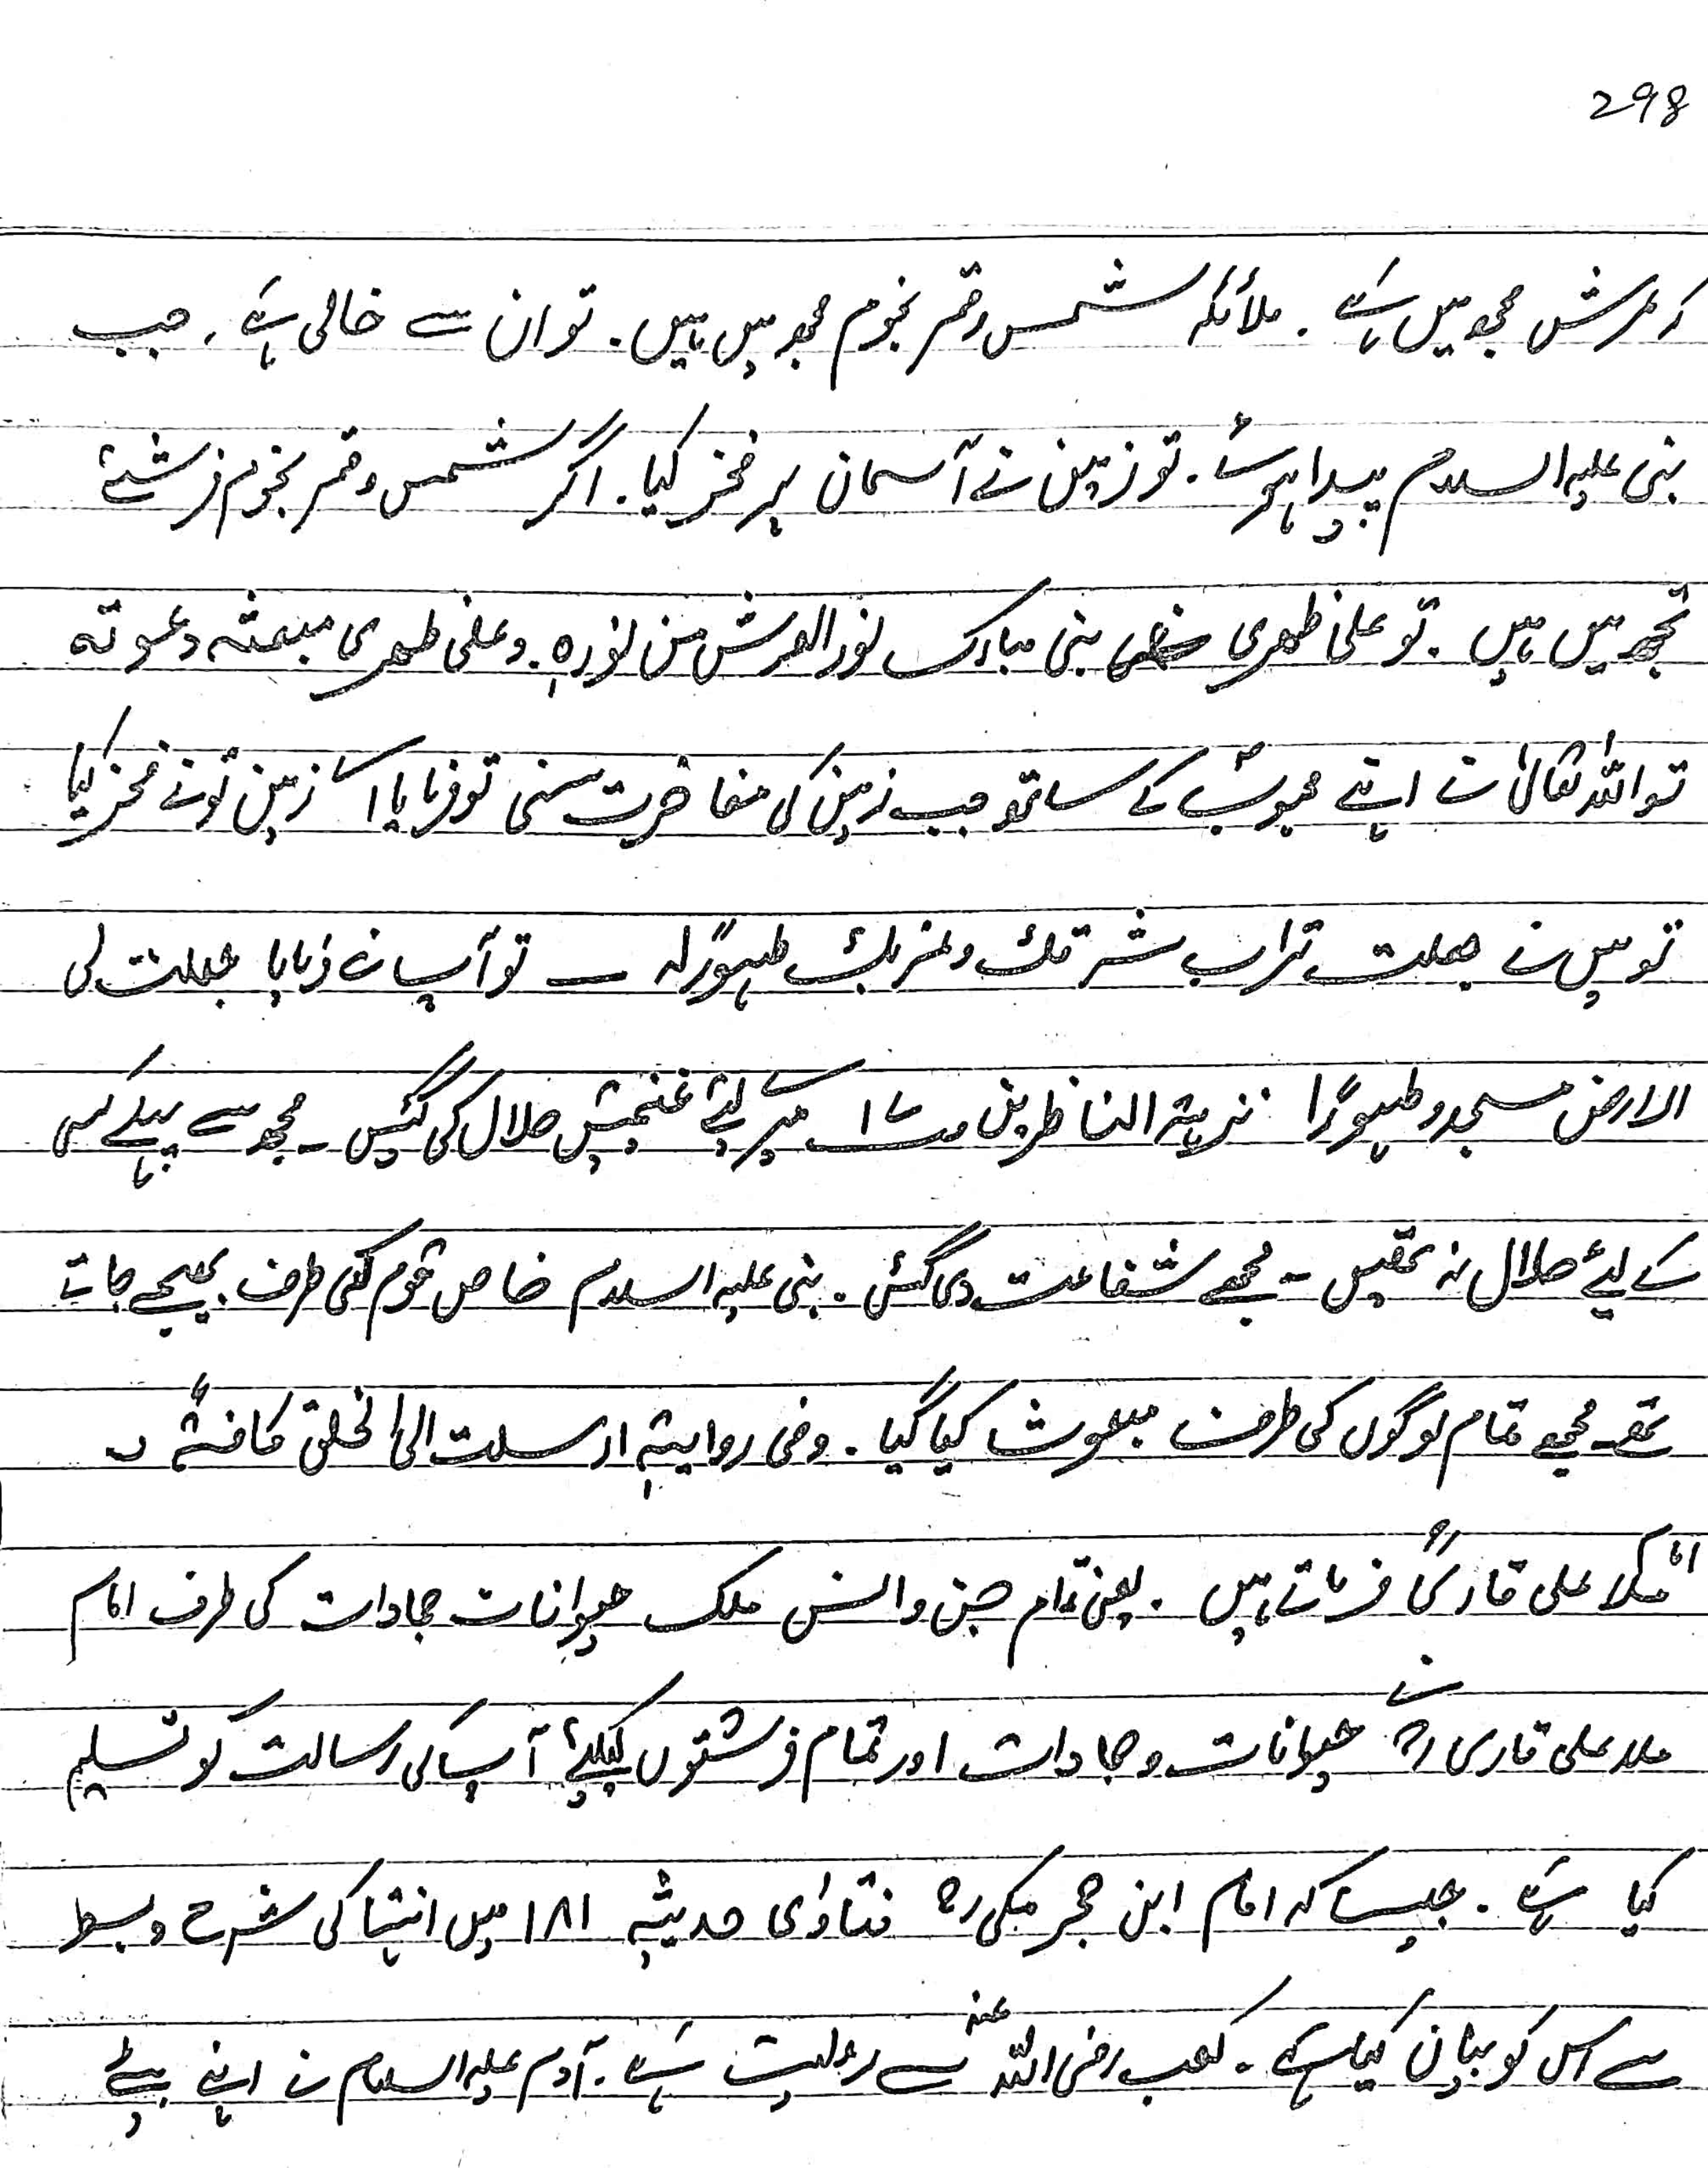 298
کہ عرش مجھ میں ہے ۔ ملائکہ شمس وقمر نجوم مجھ میں ہیں ۔ تو ان سے خالی ہے ۔ جب
نبی علیہ السلام پیدا ہوئے ۔ تو زمین نے آسمان پر فخر کیا ۔ اگر شمس وقمر نجوم فرشتے
تجھ میں ہیں ۔ تو علیٰ ظھری نبی مبارک نور العرش من نورہ ۔ وعلیٰ ظھری مبعثہ دعوتہ
تو اللہ تعالیٰ نے اپنے محبوبؐ کے ساتھ جب زمین کی مفاخرت سنی تو فرمایا اے زمین تونے فخر کیا
تو میں نے جعلت تراب شرقک وغربک طہوراً لہ — تو آپ نے فرمایا جعلت لی
الارض مسجد وطہوراً نزہتہ الناظرین میرے لئے غنیمتیں حلال کی گئیں ۔ مجھ سے پہلے کسی
کے لیئے حلال نہ تھیں ۔ مجھے شفاعت دی گئی ۔ نبی علیہ السلام خاص قوم کی طرف بھیجے جاتے
تھے ۔ مجھے تمام لوگوں کی طرف مبعوث کیا گیا ۔ وفی روایتہ ارسلت الی الخلق کافتہً
مُلا علی قاریؒ فرماتے ہیں ۔ یعنی تمام جن وانس ملک حیوانات جمادات کی طرف امام
ملا علی قاری رح نے حیوانات وجمادات اور تمام فرشتوں کیلئے آپ کی رسالت کو تسلیم
کیا ہے ۔ جیسا کہ امام ابن حجر مکی رح فتاوٰی حدیثیہ ۱۸۱ میں انتہا کی شرح وبسط
سے اس کو بیان کیا ہے ۔ کعب رضی اللہ عنہ سے روایت ہے ۔ آدم علیہ السلام نے اپنے بیٹے